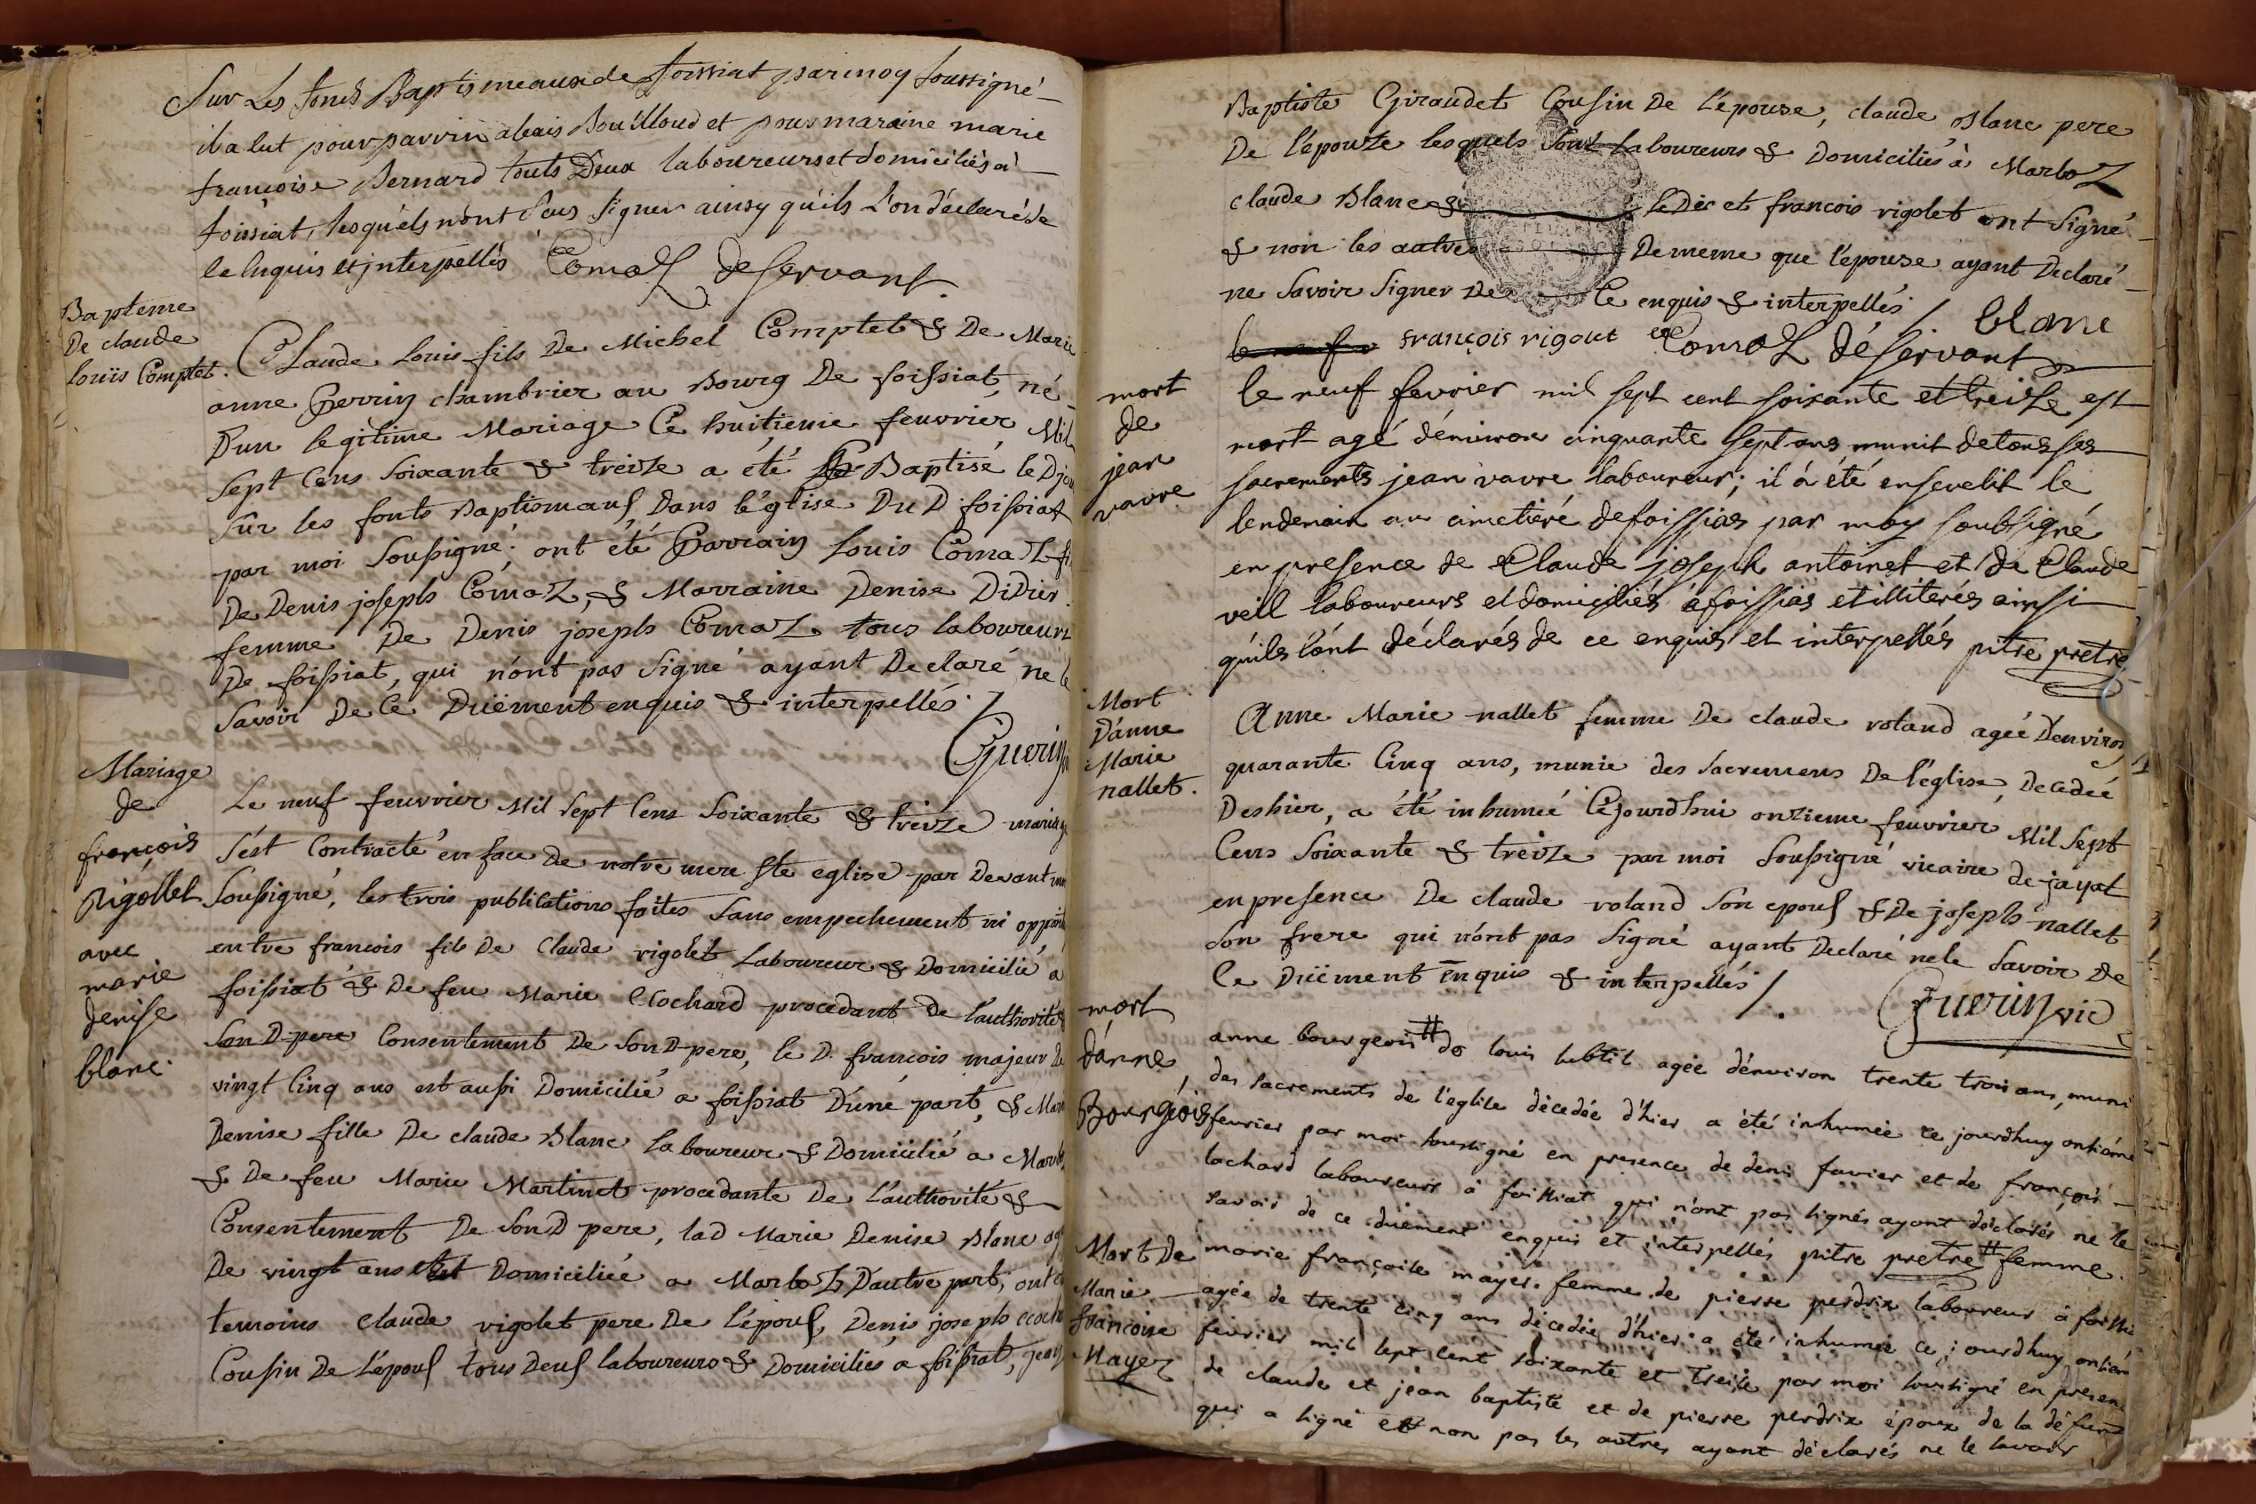 Sur Les fonds Baptismeaux de foissiat par moy soussigné
il a lut pour parrin alexis Bouilloud et pour maraine marie
francoise Bernard touts Deux laboureurs et domiciliés à
foissiat, lesquels n'ont pas signer ainsy qu'ils l'on déclaré de
ce Enquis et jnterpellés Comaz desservant
Bapteme
De claude
louis Comptet.
Claude Louis fils De Michel Comptet & De Marie
anne Perrin chambrier au Bourg De foissiat, né
D'un legitime Mariage Ce huitieme feuvrier Mil
Sept Cens Soixante & treize a été Baptisé le D jour
Sur les fonts Baptismaux Dans l'église Du D foissiat
par moi Soussigné; ont été Parrain Louis Comaz fi
De Denis joseph Comaz, & Marraine Denise Didier
femme De Denis joseph Comaz tous laboureurs
De foissiat, qui n'ont pas Signé ayant Declaré ne le
Savoir De Ce Düement enquis & interpellés
Guerin
Mariage
de
françois
Rigollet
avec
marie
denise
blanc.
Le neuf feuvrier Mil Sept Cens Soixante & treize mariage
s'est Contracté en face De notre mere Ste eglise par Devant moi
Soussigné, les trois publications faites Sans empechement ni oppositi
entre francois fils De Claude rigolet Laboureur & Domicilié a
foissiat & De feu Marie Clochard procedant De l'authorité &
Son D pere Consentement De Son D pere, le D. francois majeur De
vingt Cinq ans est aussi Domicilié a foissiat D'une part, & Marie
Denise fille De claude Blanc laboureur & Domicilié a Marboz
& De feu Marie Martinet procedante De l'authorité &
Consentement De Son D pere, la D Marie Denise Blanc ag
De vingt ans est Domiciliée a Marboz D'autre part, ont été
temoins Claude rigolet pere De l'époux, Denis joseph
Cousin De l'époux tous Deux laboureurs & Domiciliés a foissiat, jean
Baptiste Giraudet Cousin De l'épouse, claude Blanc pere
De l'épouse lesquels sont laboureurs & Domiciliés à Marboz
claude Blanc & le Der et francois rigolet ont Signé
& non les autres De meme que l'épouse ayant Declaré
ne Savoir Signer De Ce enquis & interpellés
blanc
françois rigout Comaz déservant
mort
de
jean
vavre
le neuf fevrier mil sept cent soixante et treize est
mort agé d'environ cinquante sept ans munit de tous ses
sacrements jean vavre laboureur; il à été ensevelit le
lendemain au cimetiere de foissias par moy soubsigné
en presence de Claude joseph antoinet et de Claude
veill laboureurs et domiciliés a foissias et illiterés ainsi
qu'ils l'ont déclarés de ce enquis et interpellés pitre pretre
Mort
D'anne
Marie
nallet.
Anne Marie nallet femme De claude roland agée D'environ
quarante Cinq ans, munie des sacremens De l'église, Decedée
Deshier, a été inhumée Cejourd'hui onzieme feuvrier Mil Sept
Cens Soixante & treize par moi Soussigné vicaire de jayat
en presence De claude roland Son epoux & De joseph nallet
Son frere qui n'ont pas Signé ayant Declaré ne le Savoir De
Ce Düement Enquis & interpellés
Guerin vic
mort
d'anne
Bourgeois
anne bourgeois # de louis subtil agée d'environ trente trois ans, muni
des sacrements de l'eglise décedée d'hier a été inhumée ce jourdhuy onzieme
fevrier par moi soussigné en presence de denis favier et de françois
lochard laboureurs à foissiat qui n'ont pas signés ayant déclarés ne le
savoir de ce düement enquis et interpellés pitre pretre # femme.
Mort De
Marie
francoise
Mayer
marie françoise mayer femme de pierre perdrix laboureur à foissi
agée de trente cinq ans décedée d'hier a été inhumée ce jourdhuy onziem
fevrier mil sept cent soixante et treize par moi soussigné en presen
de claude et jean baptiste et de pierre perdrix époux de la défun
qui a signé et non pas les autres ayant déclarés ne le savoir